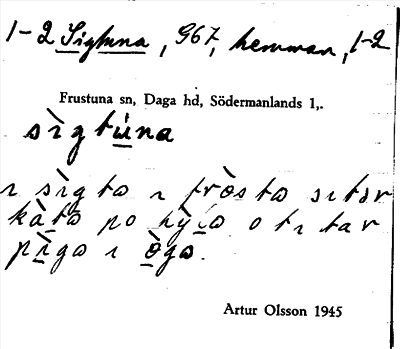 1-2 Sigtuna, 967, hemman, 1-2
Frustuna sn, Daga hd, Södermanlands l,.
sìgtúna
ı sìgta ı fròsta sıtər
kàta po hỳıa o tıtar
pìga ı ö̀ga.
Artur Olsson 1945